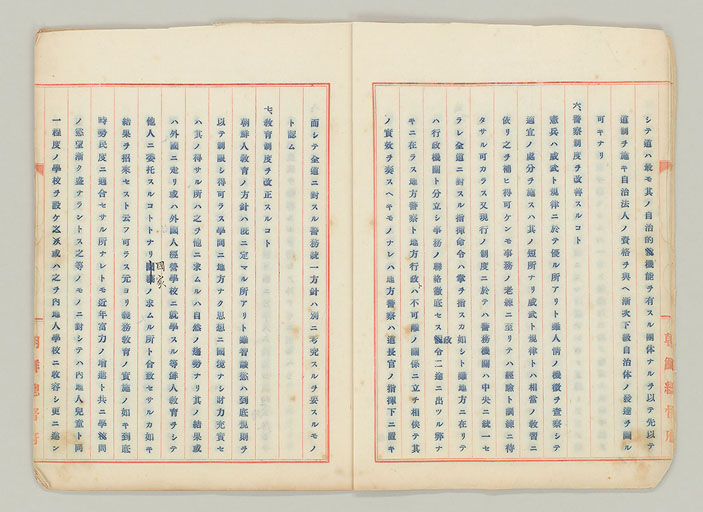 シテ道ハ最モ其ノ自治的機能ヲ有スル團体ナルヲ以テ先以テ
道制ヲ施キ自治法人ノ資格ヲ與ヘ漸次下級自治体ノ發達ヲ圖ル
可キナリ
六、警察制度ヲ改善スルコト
憲兵ハ威武ト規律ニ於テ優ル所アリト雖人情ノ機微ヲ査察シテ
適宜ノ處分ヲ施スハ其ノ短所アリ威武ト規律トハ相當ノ教習ニ
依リ之ヲ補ヒ得可ケンモ事務ノ老練ニ至リテハ經驗ト訓練ニ待
タサル可カラス又現行ノ制度ニ於テハ警務機關ハ中央ニ統一セ
ラレ全道ニ對スル指揮命令ハ掌ヲ指スカ如シト雖地方ニ在リテ
ハ行政機關ト分立シ事務ノ聯絡徹底セス政令二途ニ出ツル弊ナ
キニ在ラス地方警察ト地方行政ハ不可離ノ關係ニ立チ相俟テ其
ノ實效ヲ奏スヘキモノナレハ地方警察ハ道長官ノ指揮下ニ置キ
朝鮮總督府
而シテ全道ニ對スル警務統一方針ハ別ニ考究スルヲ要スルモノ
ト認ム
七、教育制度ヲ改正スルコト
朝鮮人教育ノ方針ハ既ニ定マル所アリト雖智識慾ハ到底規則ヲ
以テ制限シ得可ラス學問ニ地方ナク思想ニ國境ナシ財力充實セ
ハ其ノ得サル所ハ之ヲ他ニ求ムルハ自然ノ趨勢ナリ其ノ結果或
ハ外國ニ走リ或ハ外國人經營學校ニ就學スル等鮮人教育ヲシテ
他人ニ委托スルコトトナリ國家ノ求ムル所ト合致セサルカ如キ
結果ヲ招來セスト云フ可ラス元ヨリ義務教育ノ實施ノ如キ到底
時勢民度ニ適合セサル所ナレトモ近年富力ノ增進ト共ニ學校問
ノ慾望漸ク盛ナラントス之等ノモノニ對シテハ內地人兒童ト同
一程度ノ學校ヲ設ケ又ハ之ヲ內地人學校ニ收容シ更ニ進ン
朝鮮總督府